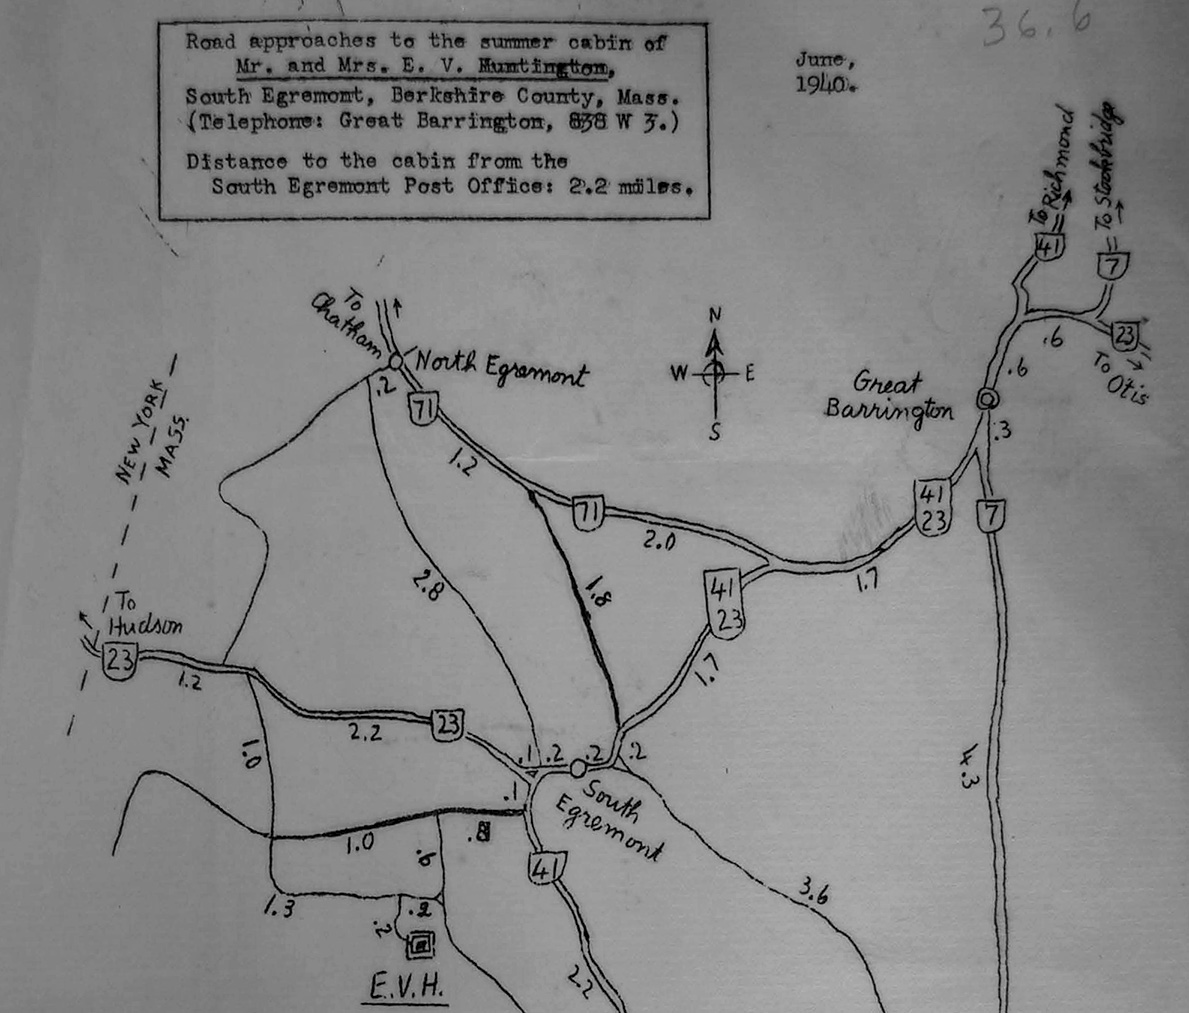 36.6
Road approaches to the summer cabin of
Mr. and Mrs. E. V. Huntington,
South Egremont, Berkshire County, Mass.
(Telephone: Great Barrington, 838 W 3.)
Distance to the cabin from the
South Egremont Post Office: 2.2 miles.
June,
1940.
To Richmond
To Stockbridge
41
7
23
To Otis
.6
.6
To
Chatham
North Egremont
N
W E
S
Great
Barrington
.2
71
.3
NEW YORK
MASS.
1.2
41
23
7
71
2.0
1.7
2.8
1.8
41
23
To
Hudson
23
1.2
1.7
2.2
23
1.0
.1
.2
.2
.2
4.3
.1
South
Egremont
1.0
.6
.8
41
3.6
1.3
.2
.2
E.V.H.
2.2